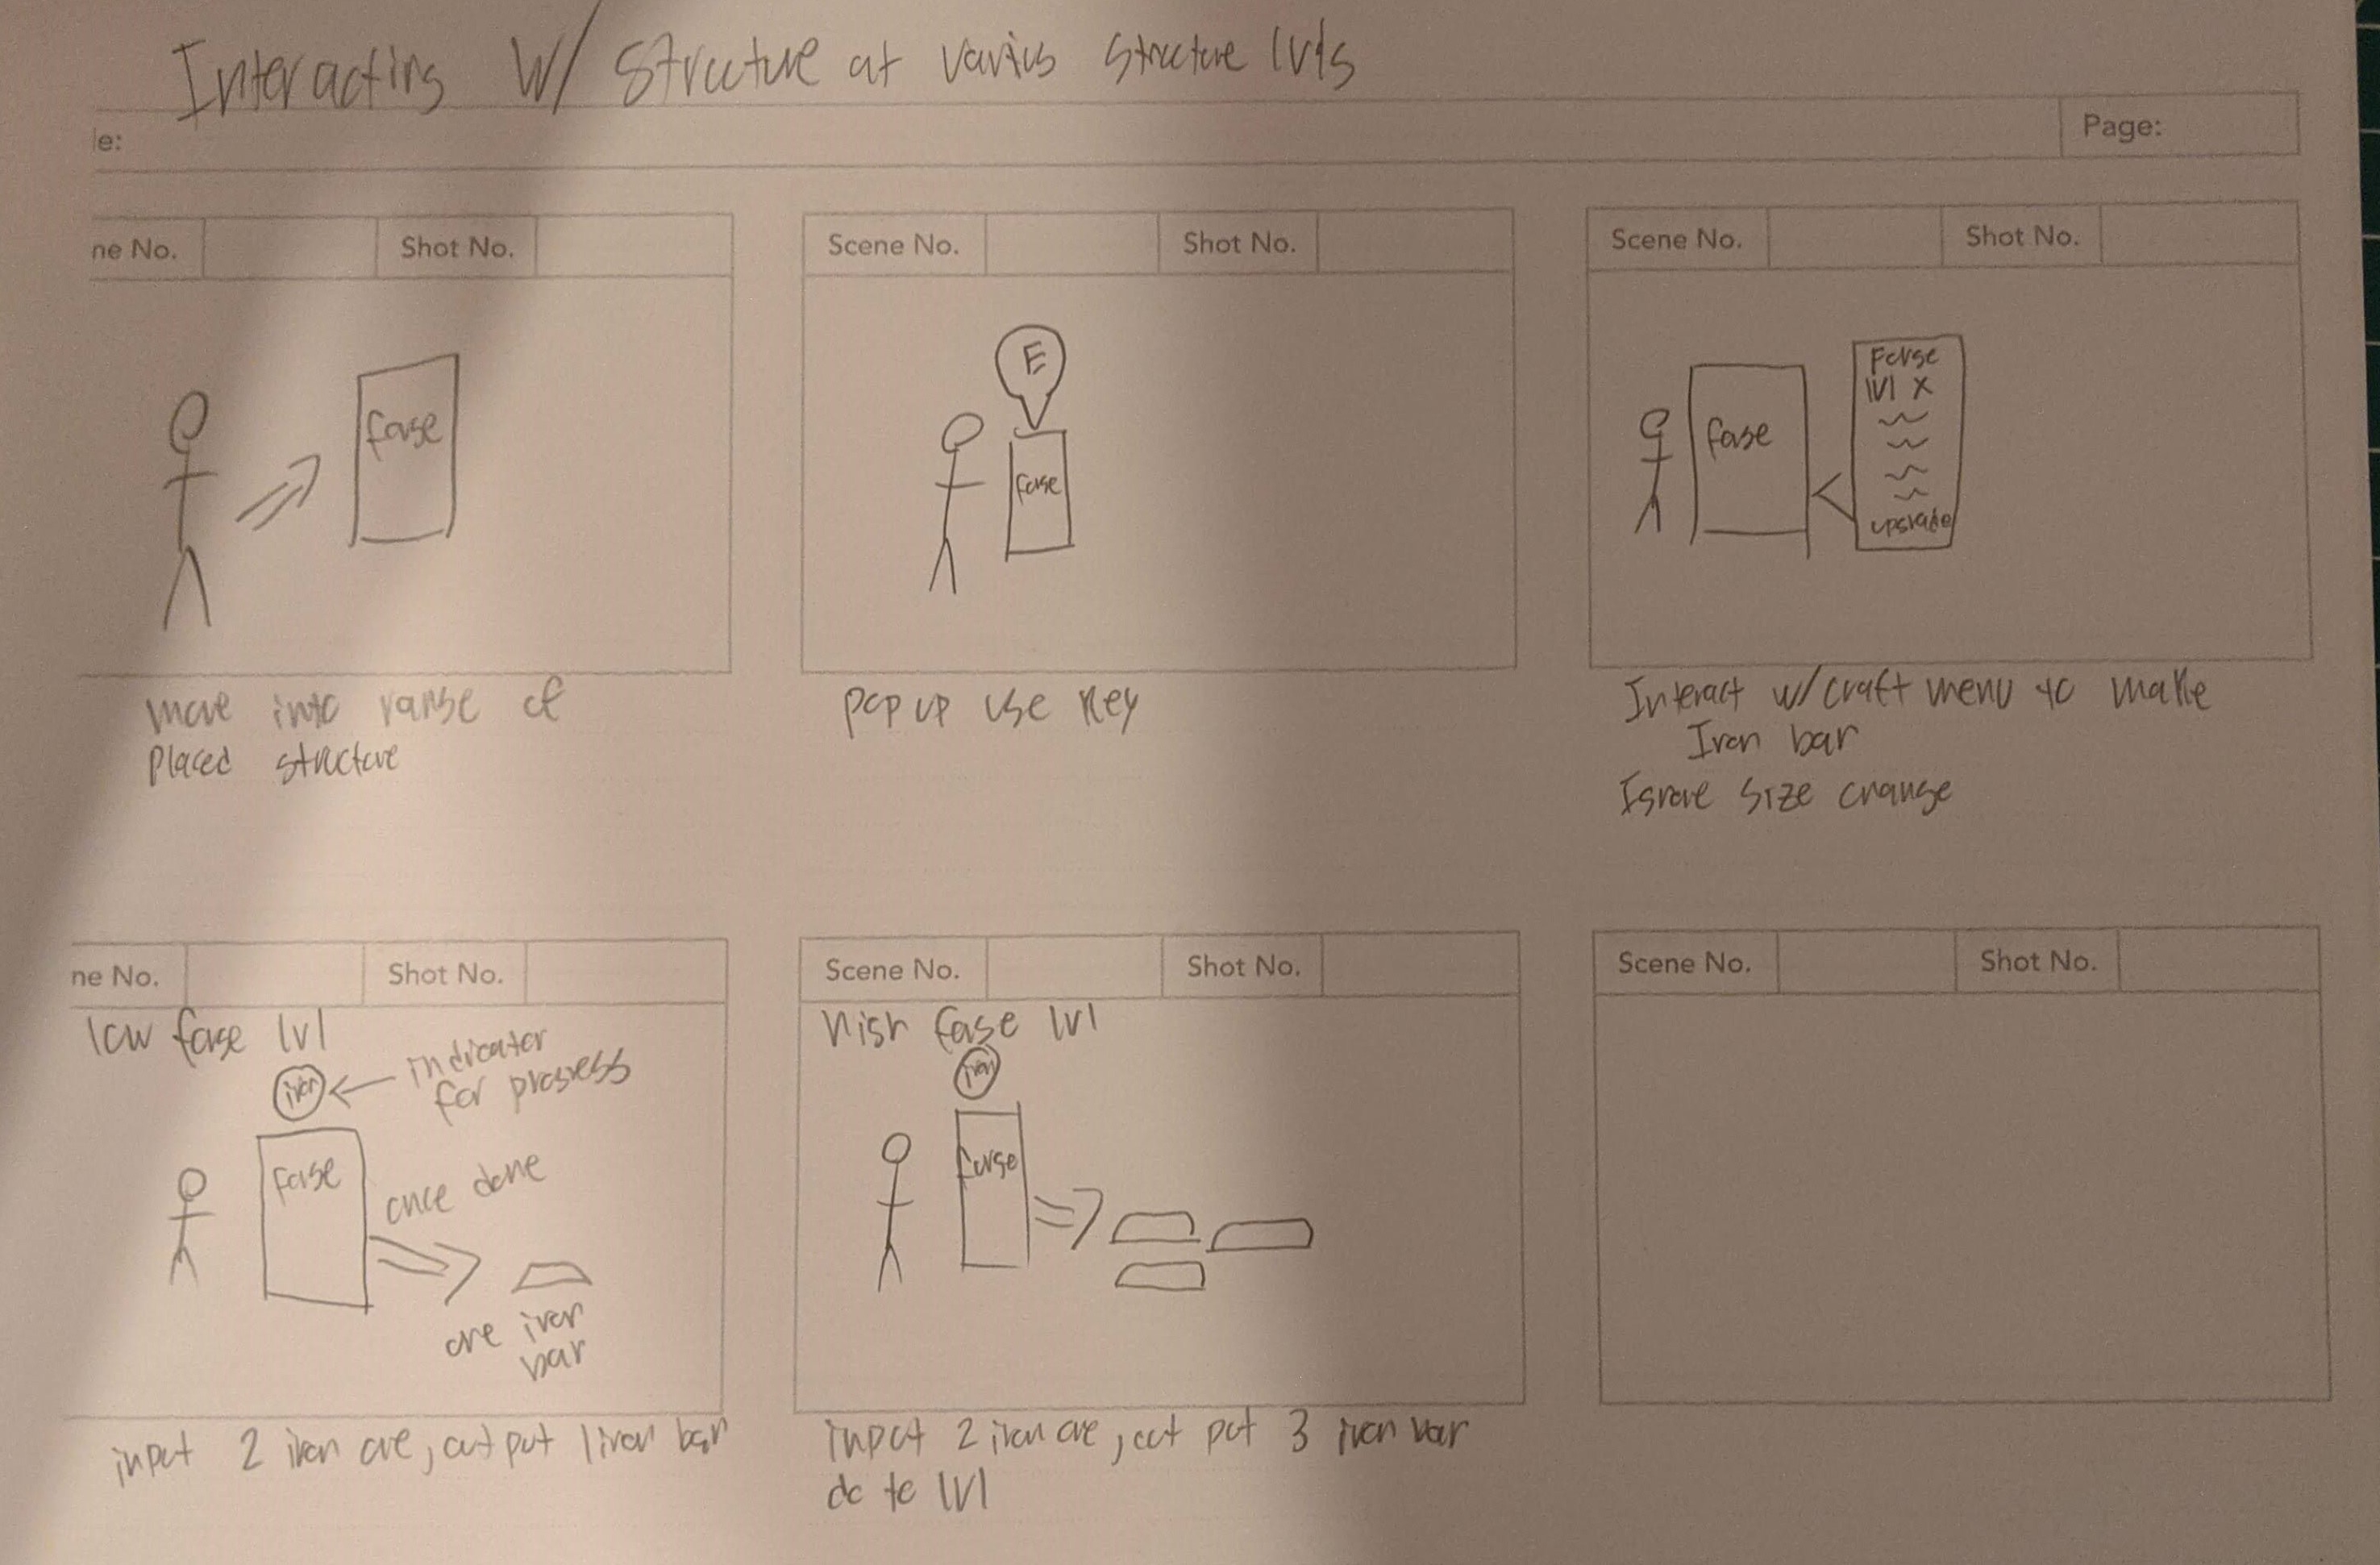 Interacting w/ Structure at varius structure lvls
le:
Page:
ne No.
Shot No.
forge
move into range of
placed structure
Scene No.
Shot No.
E
forge
pop up use key
Scene No.
Shot No.
forge
Forge
lvl x
upgrade
Interact w/craft menu to make
Iron bar
Ignore size change
ne No.
Shot No.
low forge lvl
iron
indicator
for progress
forge
once done
one iron
bar
input 2 iron ore, output 1 iron bar
Scene No.
Shot No.
high forge lvl
iron
forge
input 2 iron ore, out put 3 iron bar
do to lvl
Scene No.
Shot No.